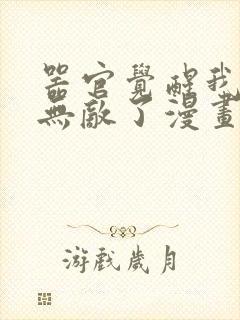 器官覺醒我
無敵了漫畫
游戲歲月